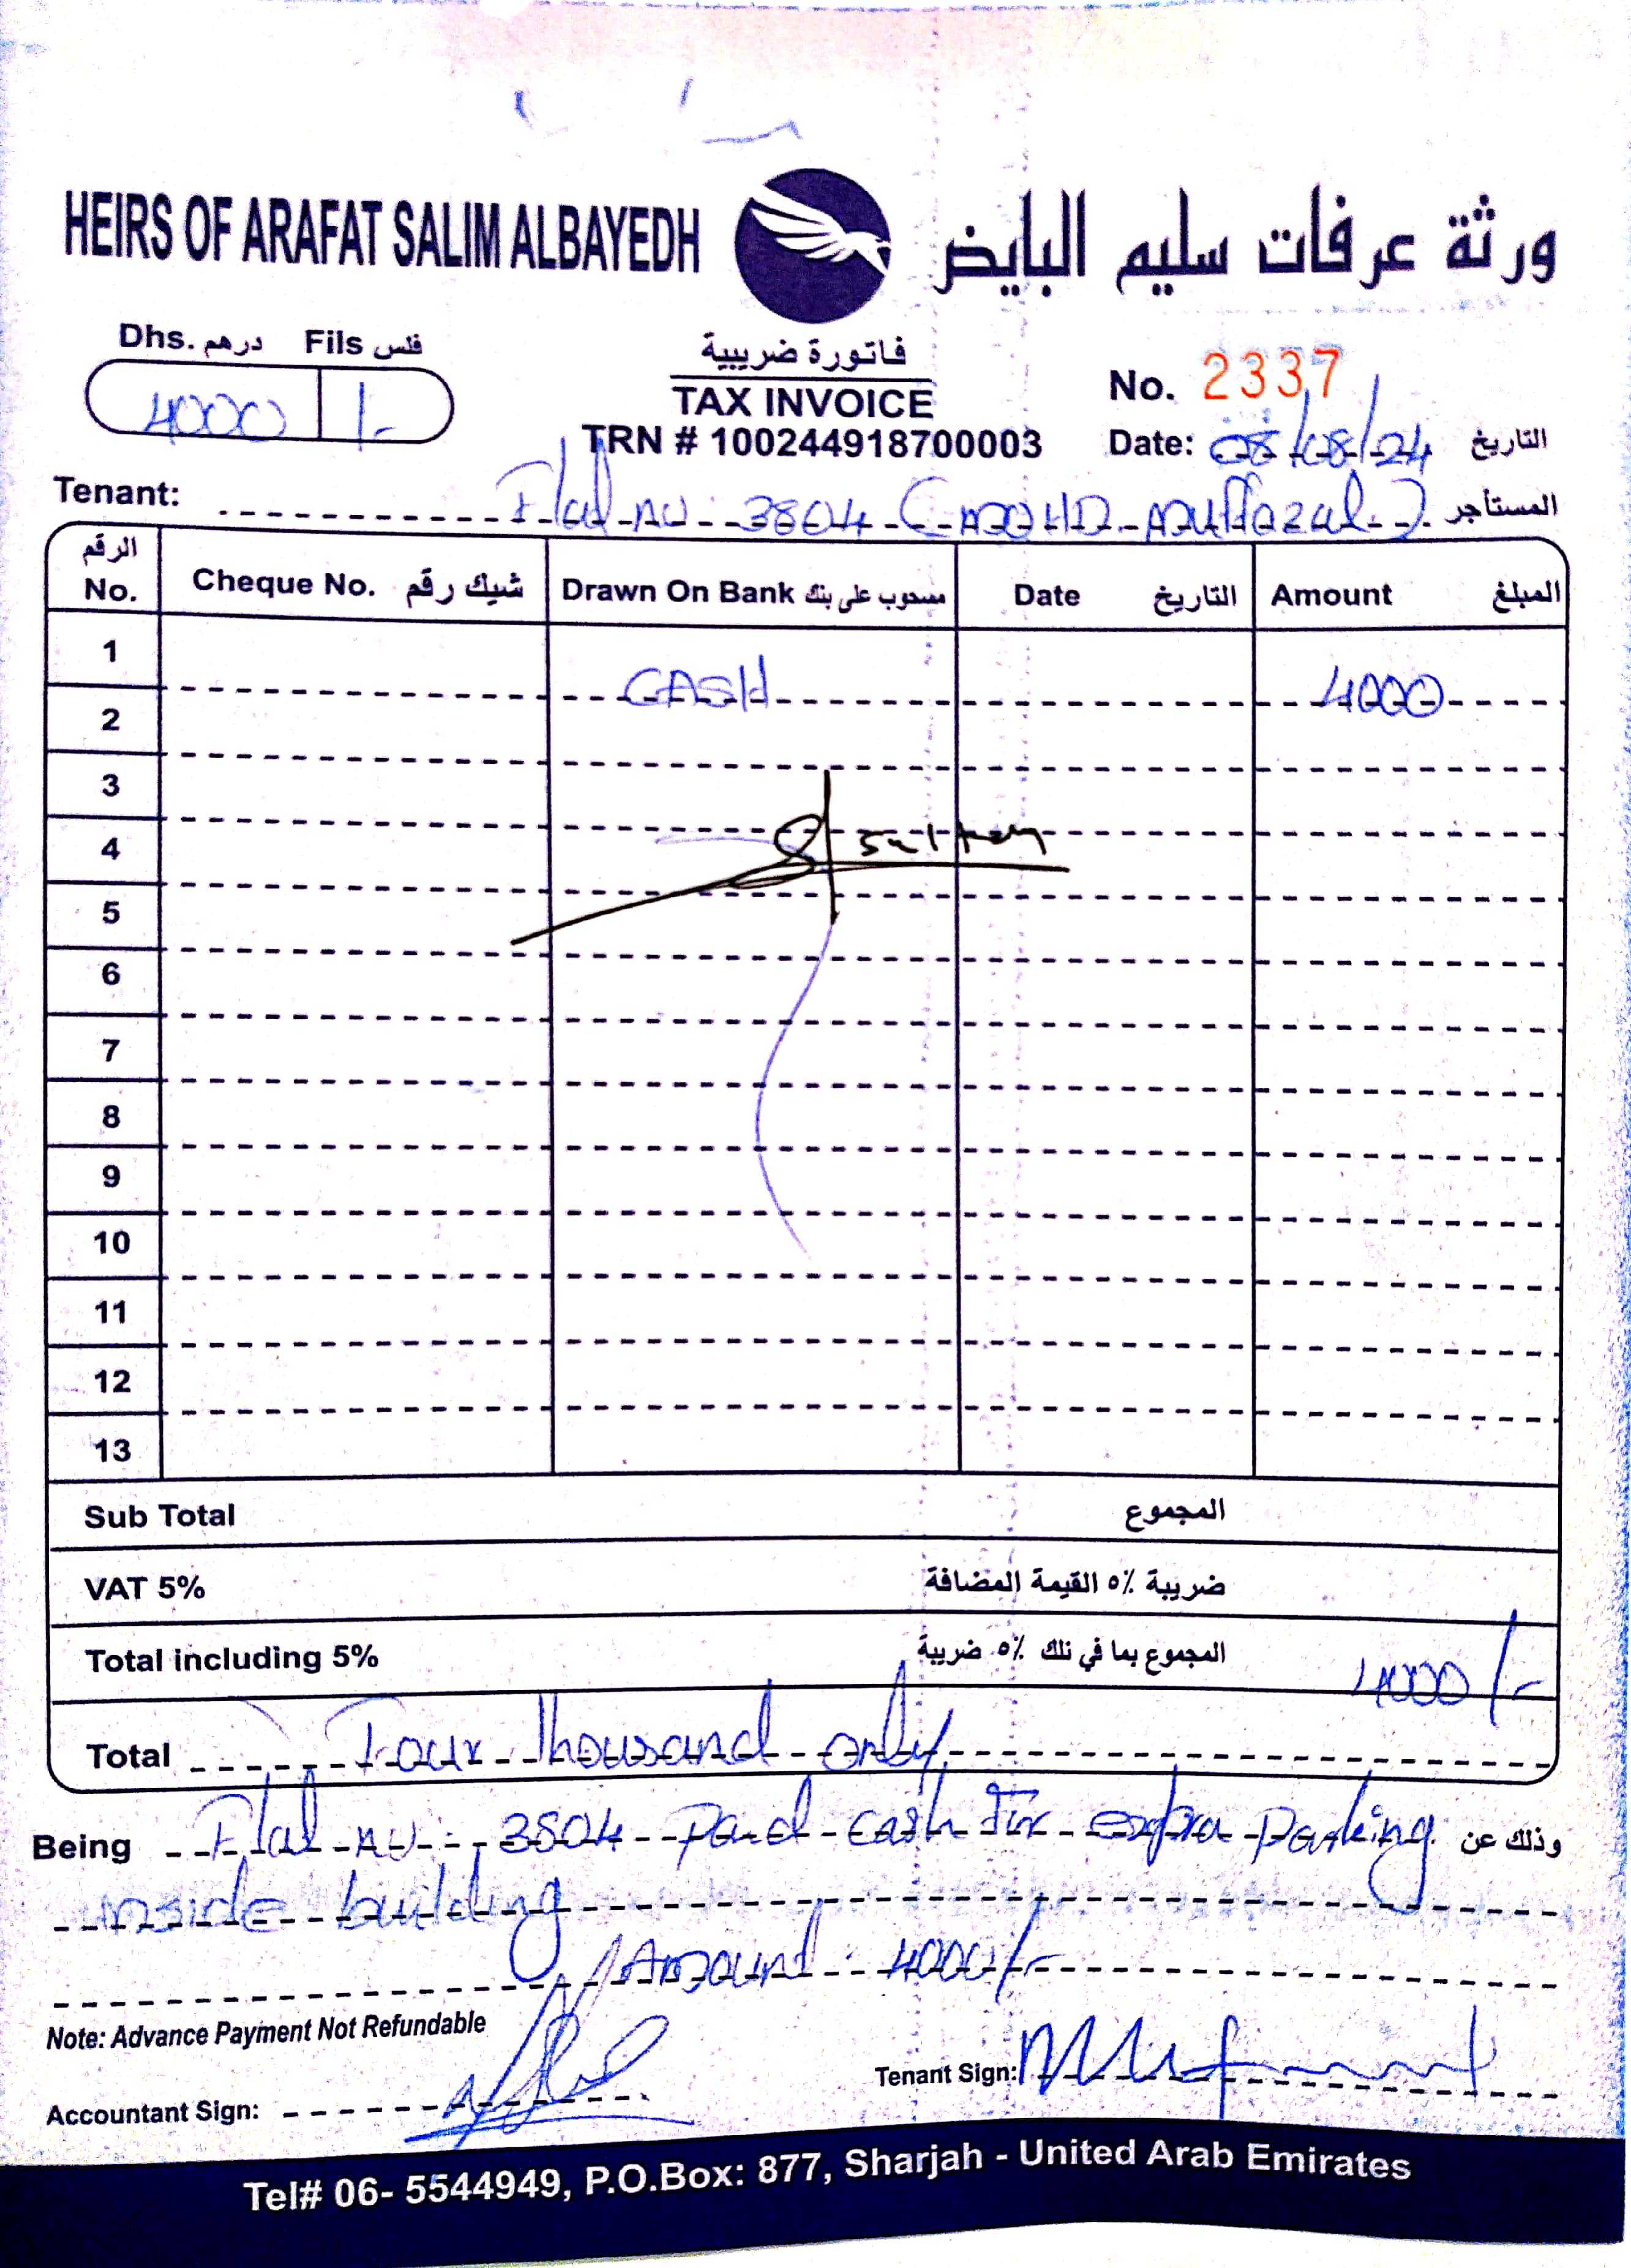 HEIRS OF ARAFAT SALIM ALBAYEDH ورثة عرفات سليم البايض
Dhs. درهم Fils فلس
4000 /-
فاتورة ضريبية
TAX INVOICE
TRN # 100244918700003
No. 2337
Date: 08/08/24 التاريخ
Tenant: Flat no: 3804 (MOHD Muffazal) المستأجر
الرقم No. Cheque No. شيك رقم Drawn On Bank مسحوب على بنك Date التاريخ Amount المبلغ
1 CASH 4000
2
3
4
5
6
7
8
9
10
11
12
13
Sub Total المجموع
VAT 5% ضريبة ٥٪ القيمة المضافة
Total including 5% المجموع بما في ذلك ٥٪ ضريبة 4000/-
Total Four thousand only
Being Flat no: 3804 Paid cash for extra parking وذلك عن
inside building
Amount: 4000/-
Note: Advance Payment Not Refundable
Accountant Sign:
Tenant Sign:
Tel# 06- 5544949, P.O.Box: 877, Sharjah - United Arab Emirates